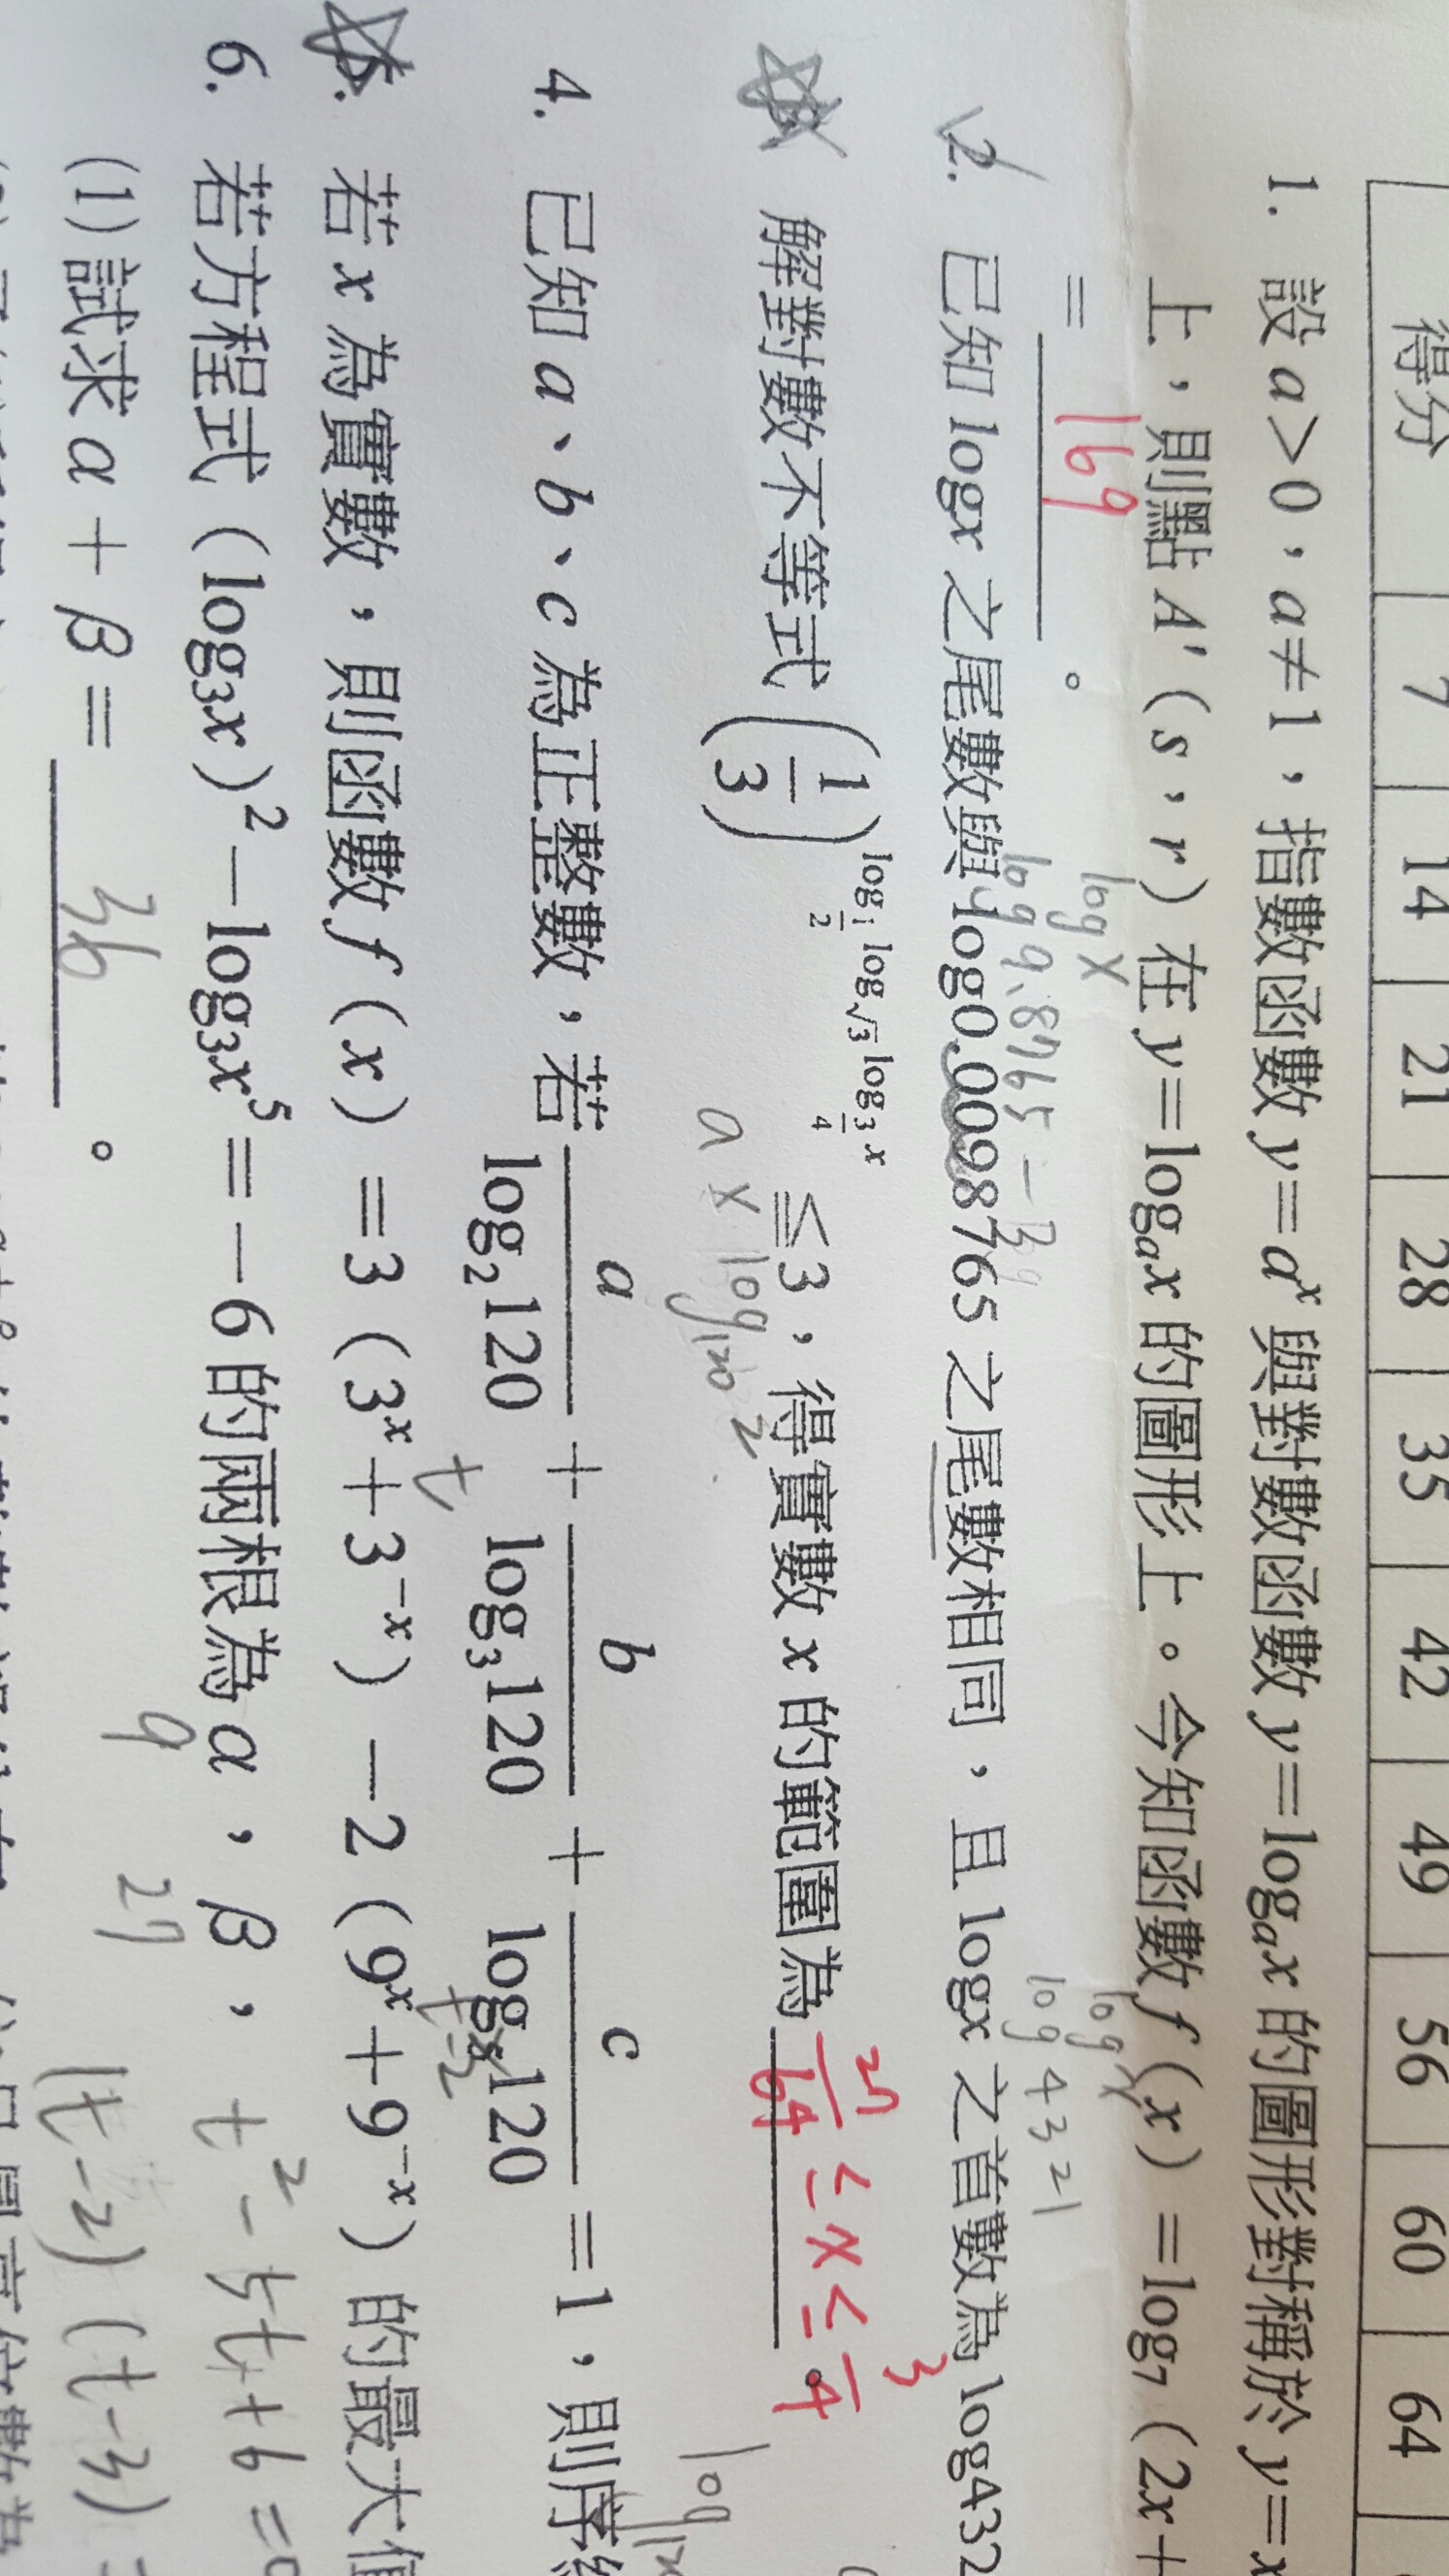 得分 7 14 21 28 35 42 49 56 60 64
1. 設 a>0，a≠1，指數函數 y=aˣ 與對數函數 y=logₐx 的圖形對稱於 y=x
上，則點 A'(s，r) 在 y=logₐx 的圖形上。今知函數 f(x)=log₇(2x+
= 169 。
log x
log 9.8765 -3
log x
log 4321
2. 已知 logx 之尾數與 log0.0098765 之尾數相同，且 logx 之首數為 log432
解對數不等式 (1/3)^(log_(1/2) log_√3 log_(3/4) x) ≦3，得實數 x 的範圍為 27/64 ≤ x ≤ 3/4
a × log₁₂₀2
4. 已知 a、b、c 為正整數，若 a/log₂120 + b/log₃120 + c/log₅120 =1，則序
5. 若 x 為實數，則函數 f(x)=3(3ˣ+3⁻ˣ)-2(9ˣ+9⁻ˣ) 的最大值
t t²-2
6. 若方程式 (log₃x)²-log₃x⁵=-6 的兩根為 α，β， t²-5t+6=0
9 27 (t-2)(t-3)=
(1) 試求 α+β= 36 。